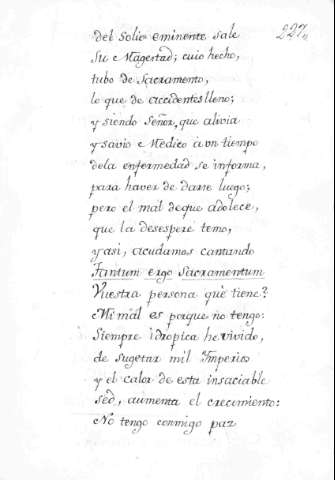 227,
del Solio eminente sale
Su Magertad; cuio hecho,
tubo de Sacramento,
lo que de accidentes lleno;
y siendo Señor, que alivia
y savio Medico à un tiempo
dela enfermedad se informa,
para haver de darse luego;
pero el mal deque adolece,
que la desespere temo,
y asi, acudamos cantando
Tantum ergo Sacramentum
Vuestra persona què tiene?
Mi mal es porque no tengo:
Siempre idropica he vivido,
de sugetar mil Imperios
y el calor de esta insaciable
sed, aumenta el crecimiento:
No tengo conmigo paz